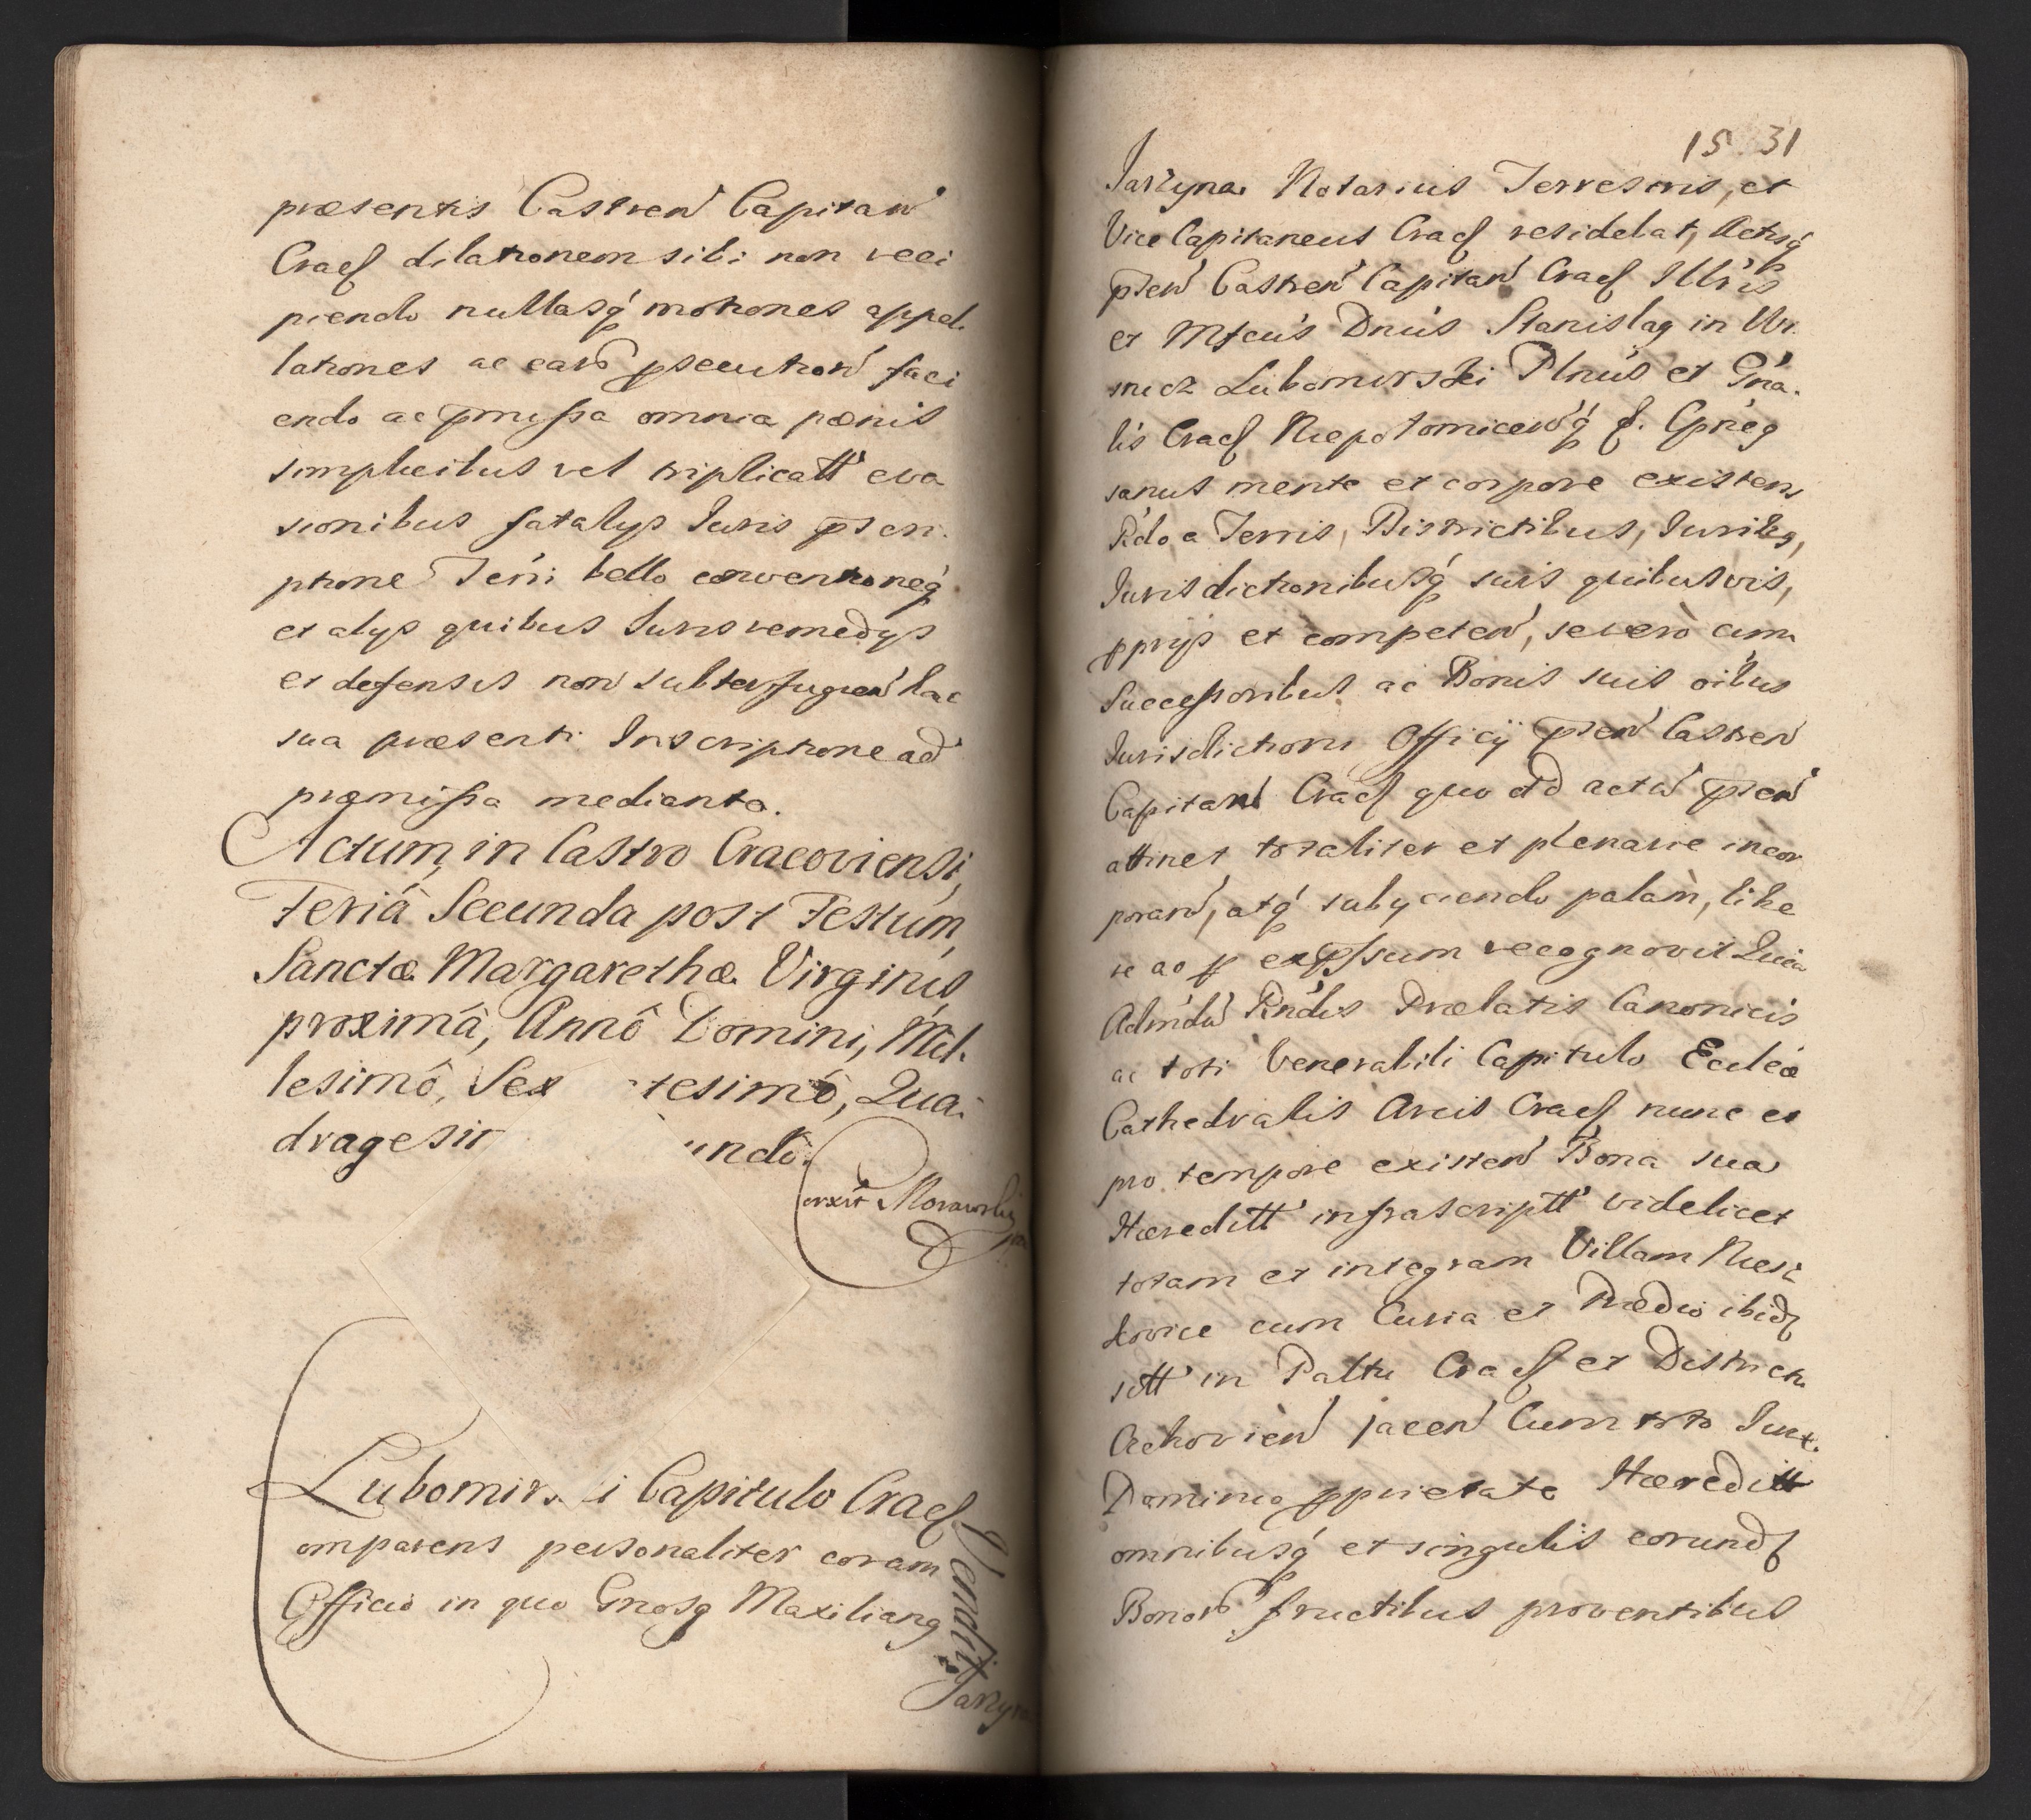 præsentis Castren Capitan
Cracꝭ dilationem sibi non reci
piendo nullasq́ motiones appel-
lationes ac earū ꝓsecution faci
endo ac p̄missa omnia pœnis
simplicibus vel triplicatt eva
sionibus fatalijs Iuris p̄scri-
ptione Terri bello conventioneq́
et alijs quibus Iuris remedijs
et defensis non subterfugien hac
sua præsenti Inscriptione ad
præmissa mediante.
Actum, in Castro Cracoviensi,
Feriâ Secunda post Festum
Sanctæ Margarethæ Virginis
proximâ, Annô Domini, Mil-
lesimô, Sex tesimô, Qua-
dragesi undô.
orxit Morawski
Lubomirs i Capitulo Cracꝭ
Vendit
omparens personaliter coram
Officio in quo Gnosq Maxilianq
Jarzyna
15 31
Jarzyna Notarius Terrestris, et
Vice Capitaneus Cracꝭ residebat, Actisq́
p̄sen Castren Capitan Cracꝭ Illris
et Mfcus Dnus Stanislaq in Wi-
snicz Lubomirski Plnus et Gna-
lis Cracꝭ Niepolomicenq́ ꝭ. Cpneq
sanus mente et corpore existens
Rdo a Terris, Districtibus, Iuribq,
Iurisdictionibusq́ suis quibusvis,
ꝓprijs et competen, se vero cum
Successoribus ac Bonis suis oibus
Iurisdictioni Officij p̄sen Castren
Capitan Cracꝭ quo ad actu p̄sen
attinet totaliter et plenarie incor
poran, atq́ subijciendo palàm, libe
re ac ꝑ expssum recognovit Quia
Admdu Rndis Prælatis Canonicis
ac toti Venerabili Capitulo Eccleæ
Cathedralis Arcis Cracꝭ nunc et
pro tempore existen Bona sua
Hæreditt infrascriptt videlicet
totam et integram Villam Niesz
kovice cum Curia et Prædio ibidꝭ
sitt in Paltu Cracꝭ et Districtu
Czchovien jacen Cum toto Iure.
Dominio ꝓprietate Hæreditt
omnibusq́ et singulis eorundꝭ
Bonorū fructibus proventibus